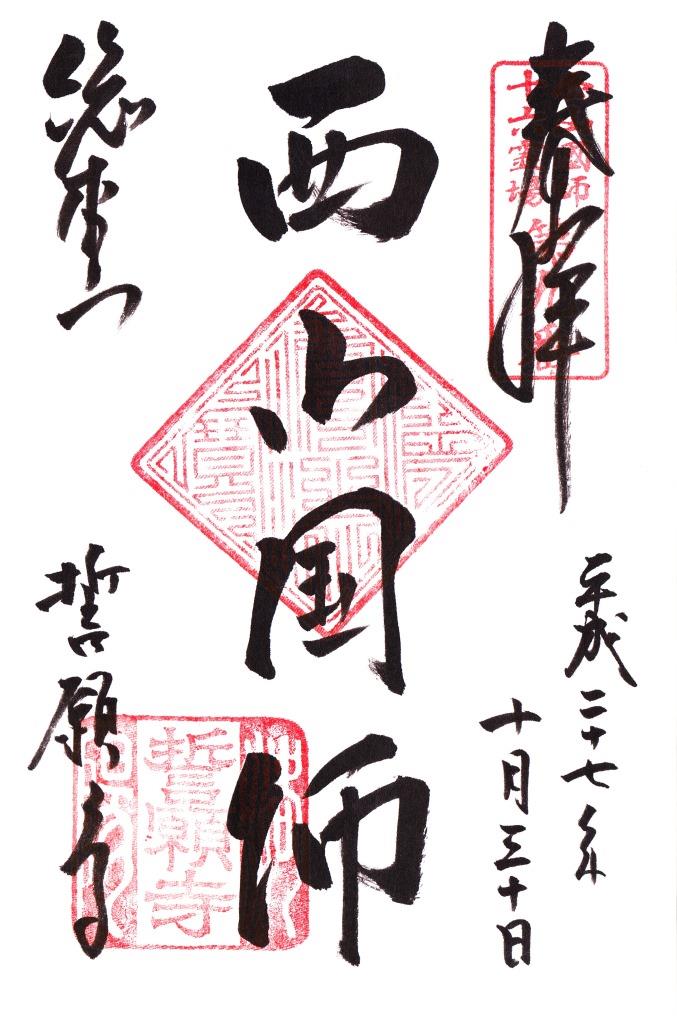 奉拝
國師
十六霊場
平成二十七年
十月三十日
西山国師
総本山
誓願寺
誓願寺